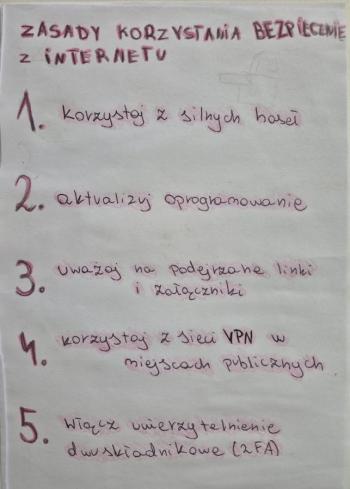 ZASADY KORZYSTANIA BEZPIECZNIE
Z INTERNETU
1. korzystaj z silnych haseł
2. aktualizuj oprogramowanie
3. uważaj na podejrzane linki
i załączniki
4. korzystaj z sieci VPN w
miejscach publicznych
5. Włącz uwierzytelnienie
dwuskładnikowe (2FA)